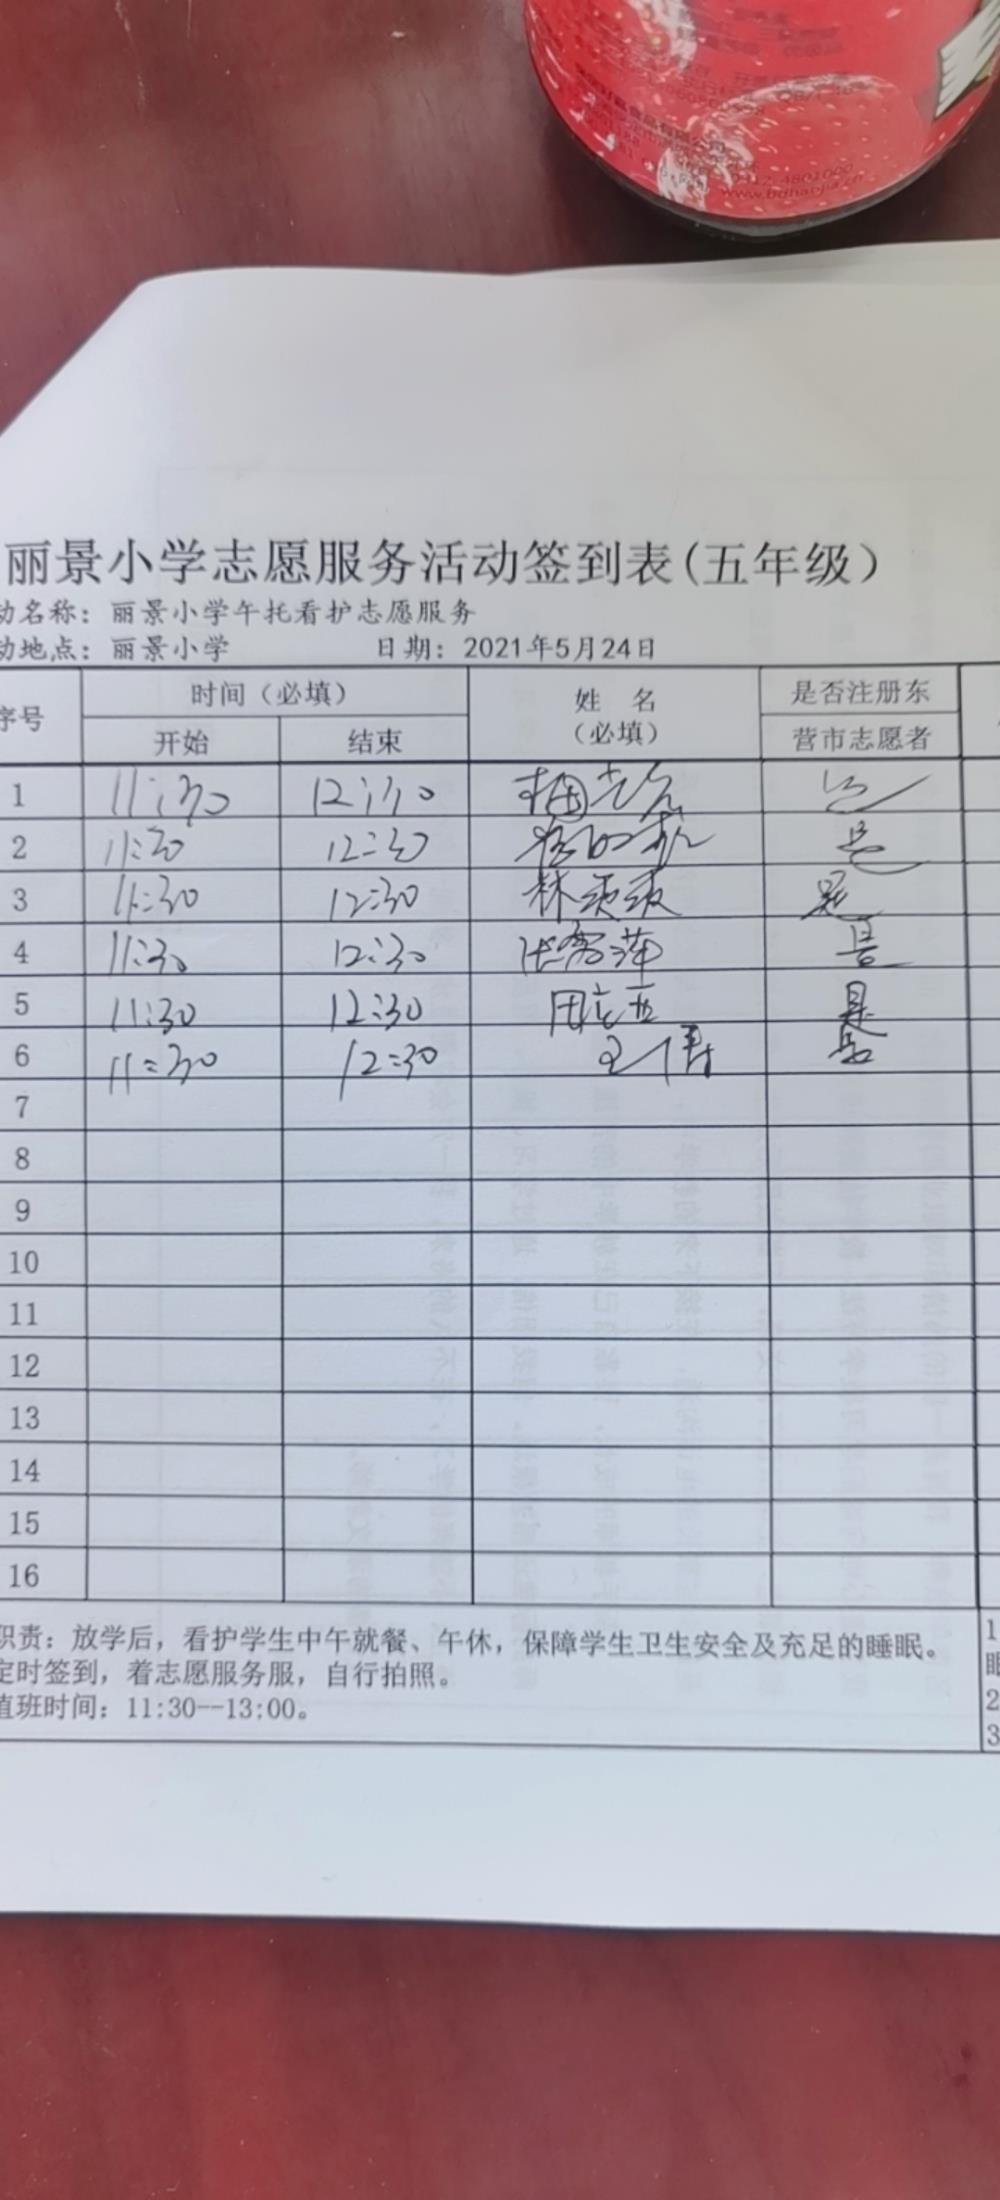 0312-4801000
www.bdhaojia.cn
丽景小学志愿服务活动签到表(五年级)
动名称：丽景小学午托看护志愿服务
动地点：丽景小学 日期：2021年5月24日
序号 时间（必填） 姓 名 是否注册东
开始 结束 （必填） 营市志愿者
1 11:30 12:30 是
2 11:30 12:30 是
3 11:30 12:30 林 是
4 11:30 12:30 是
5 11:30 12:30 是
6 11:30 12:30 王倩 是
7
8
9
10
11
12
13
14
15
16
职责：放学后，看护学生中午就餐、午休，保障学生卫生安全及充足的睡眠。 1
定时签到，着志愿服务服，自行拍照。 眠
值班时间：11:30--13:00。 2
3